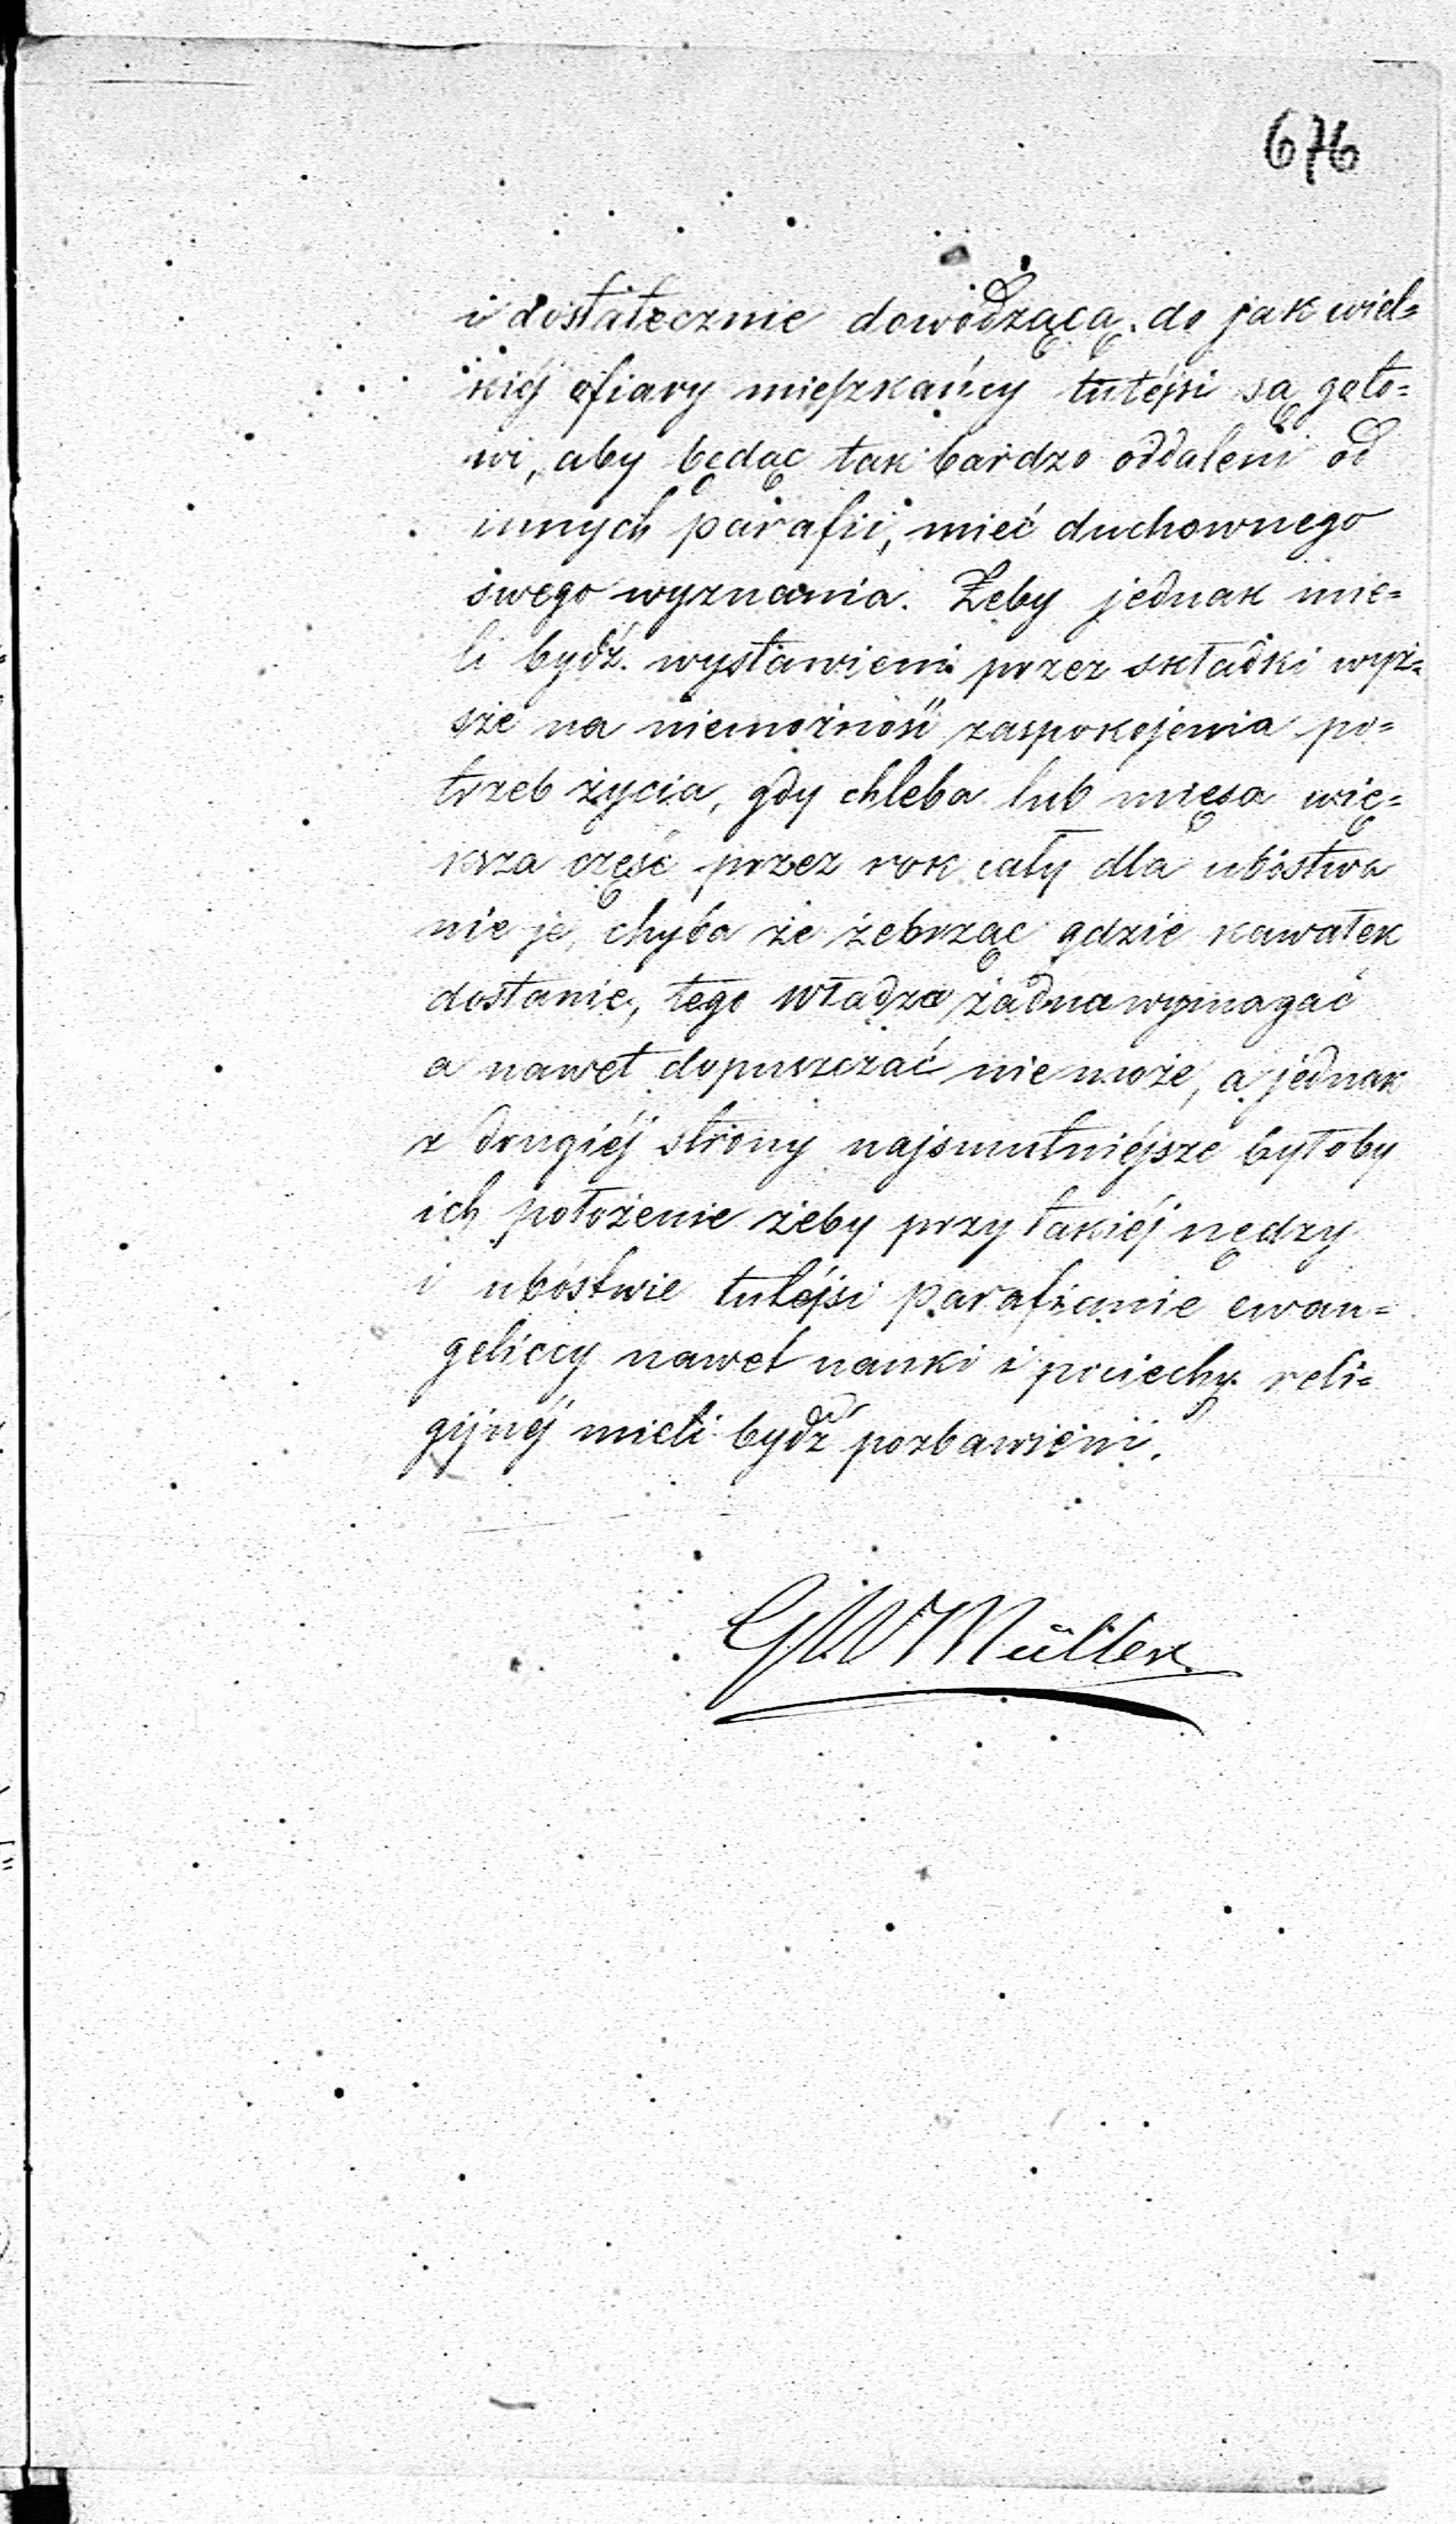 676
i dostatecznie dowodzącą do jak wiel=
kiéj ofiary mieszkańcy tutéjsi są goto=
wi, aby będąc tak bardzo oddaleni od
innych parafii, mieć duchownego
swego wyznania. Żeby jednak mie=
li bydź wystawieni przez składki wyż=
sze na niemożność zaspokojenia po=
trzeb życia, gdy chleba lub mięsa wię=
ksza część przez rok cały dla ubóstwa
nie je, chyba że żebrząc gdzie kawałek
dostanie, tego Władza żadna wymagać
a nawet dopuszczać nie może, a jednak
z drugiéj strony najsmutniéjsze byłoby
ich położenie żeby przy takiéj nędzy
i ubóstwie tutéjsi parafianie ewan=
geliccy nawet nauki i pociechy reli=
gijnéj mieli bydź pozbawieni.
GW Müller